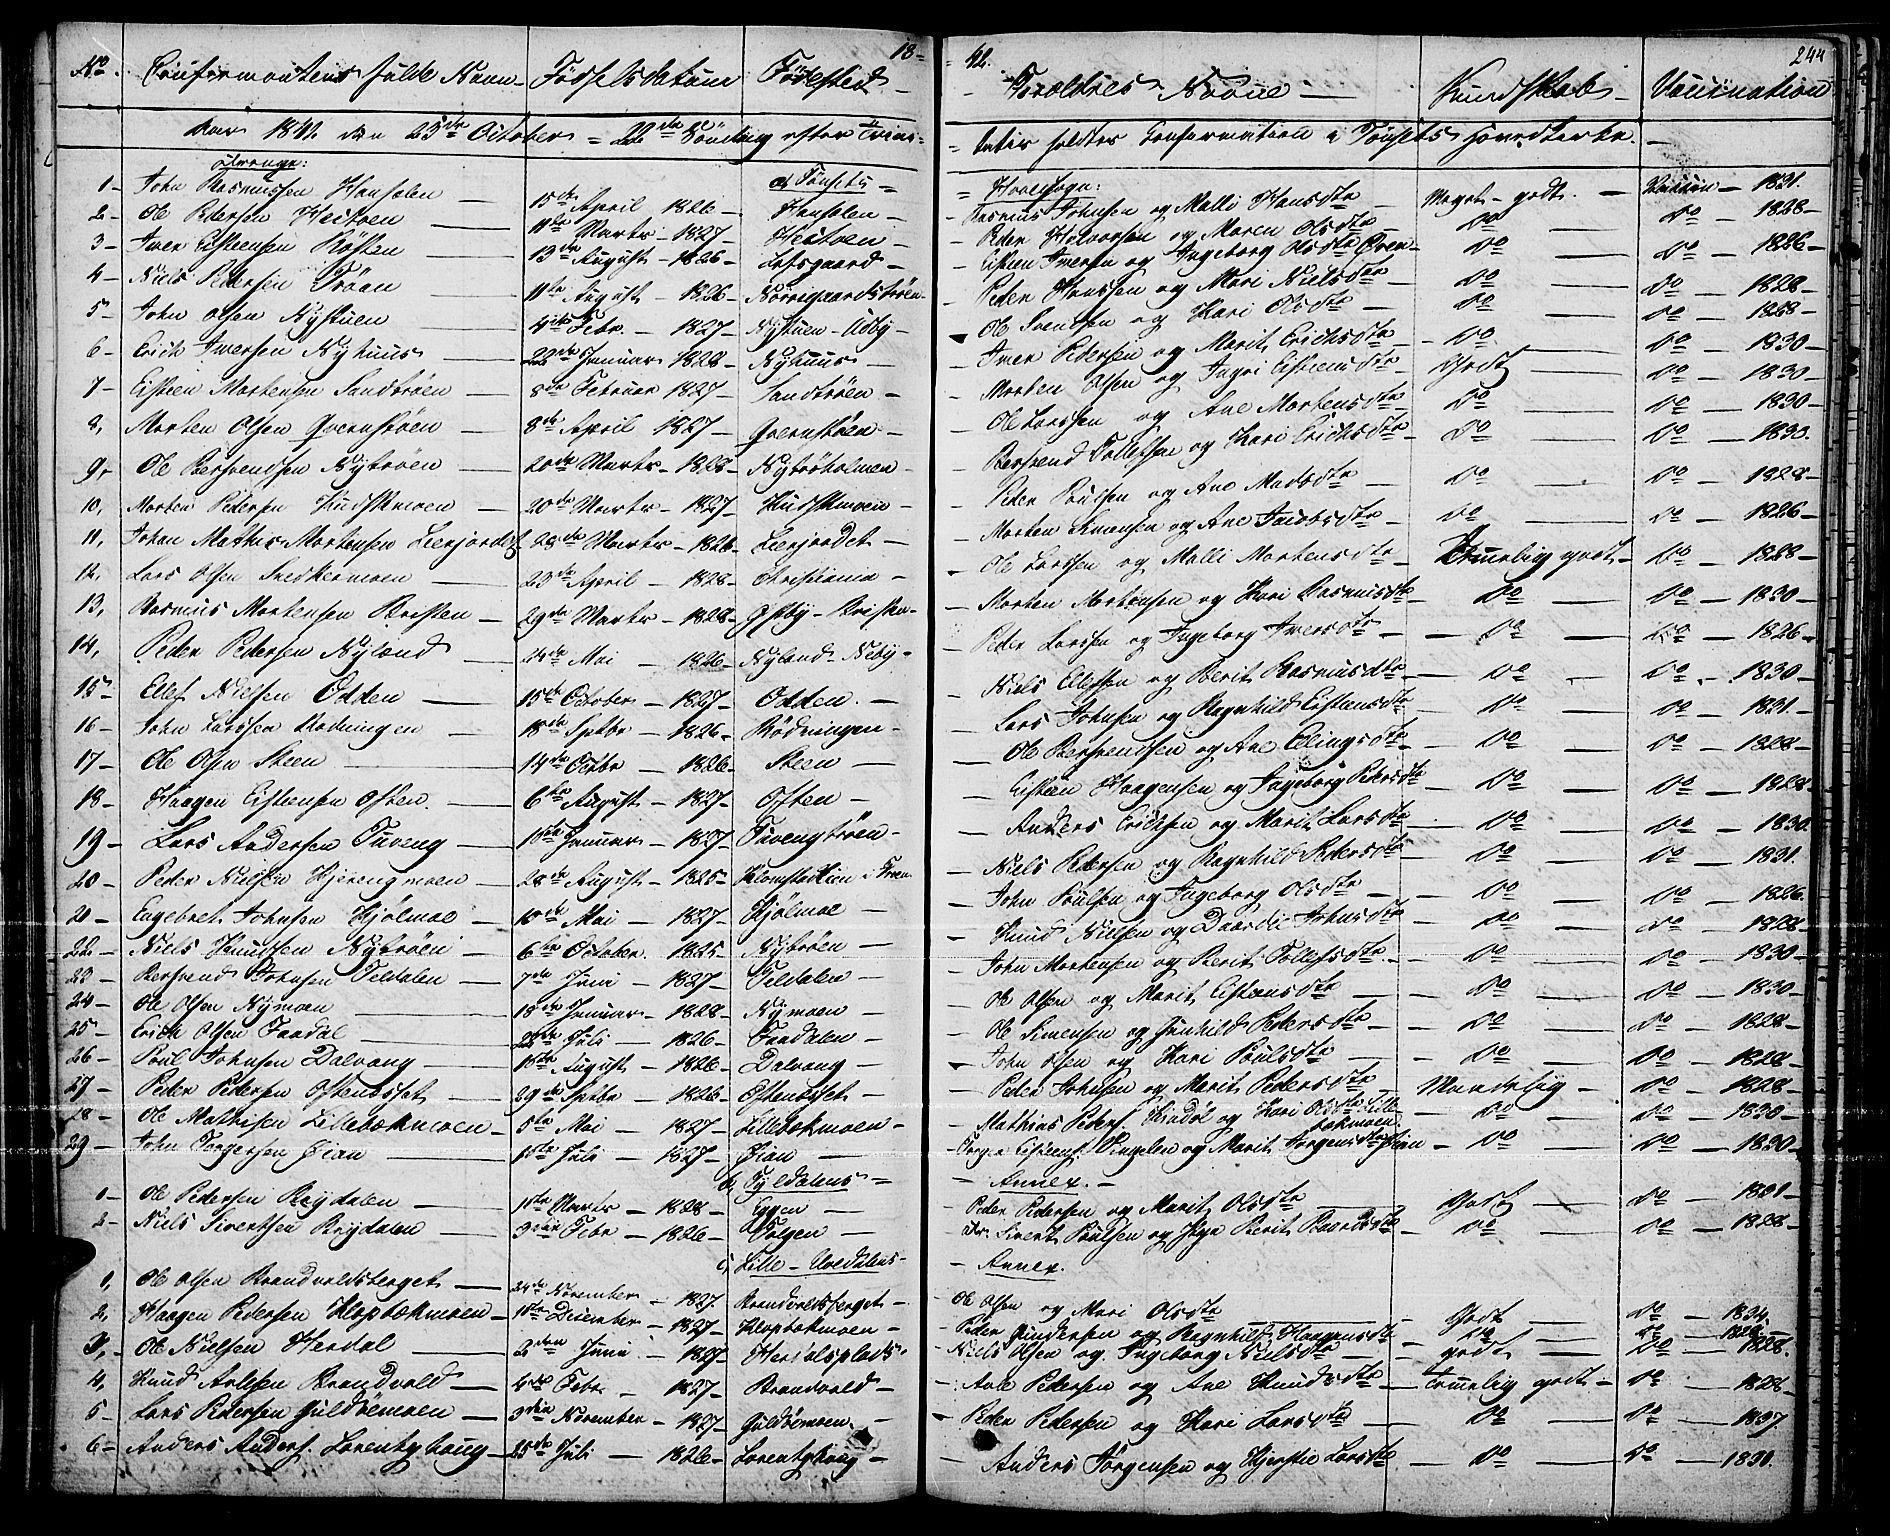 18- 42. 244
No. Confirmantens fulde Navn - Fødselsdatum Fødested - Forældres Navne - Kundskab - Vaccination
Aar 1842 den 23de October = 22de Søndag efter Trini- = tatis holdtes Confirmation i Tønsets Hovedkirke. -
Drenge: a, Tønsets = = Hovedsogn:
1- John Rasmussen Hansælen - 15de April 1826 - Hansælen - Rasmus Johnsen og Malli Hansdtr - Meget godt. - Vaccin - 1831.
2- Ole Pedersen - 11te Marts - 1827 - Peder Halvorsen og Maren Olsdtr - Do - Do - 1828 -
3- Iver Estensen - 13de August - 1826 - Lofsgaard - Esten Iversen og Ingeborg Olsdtr Øren - Do - Do - 1826 -
4- Niels Pedersen Trøan - 11te August - 1826 - Nørregaardstrøen - Peder Hanssen og Mari Nielsdtr - Do - Do - 1828 -
5- John Olsen Nystuen - 4de Febr. - 1827 - Nystuen - Udby - Ole Svendsen og Kari Olsdtr - Do - Do - 1828 -
6- Erich Iversen Nyhuus - 22de Januar 1828 - Nyhuus - Iver Pedersen og Marit Erichsdtr - Do - Do - 1830 -
7- Estien Mortensen Sandtrøen - 8de Februar 1827 - Sandtrøen - Morten Olsen og Ingri Estiensdtr - Godt - Do - 1830 -
8, Morten Olsen Qvernstrøen - 8de April 1827 - Qvernstrøen - Ole Larssen og Ane Mortensdtr - Do - Do - 1830
9, Ole Bersvendsen Nytrøen - 20de Marts - 1828 - Nytrøholmen - Bersvend Tollefsen og Kari Erichsdtr - Do - Do - 1830.
10, Morten Pedersen - 20de Marts - 1827 - Peder Poulsen og Ane Madsdtr - Do - Do - 1828 -
11, Johan Mathias Mortensen Leerjordet - 28de Marts - 1826 - Leerjordet - Morten og Ane Jacobsdtr - Do - Do - 1826 -
12, Lars Olsen - 23de April - 1828 - Christiania - Ole Larssen og Malli Mortensdtr - Temmelig godt - Do - 1828 -
13, Rasmus Mortensen - 29de Marts - 1828 - Morten Mortensen og Kari Rasmusdtr - Do - Do - 1830 -
14, Peder Pedersen Nyland - 24de Mai - 1826 - Nyland - Neby - Peder Larssen og Ingeborg Iversdtr - Do - Do - 1826 -
15- Ellef Nielsen Odden - 15de October - 1827 - Odden. - Niels Ellefsen og Berit Rasmusdtr - Do - Do - 1830 -
16- John Larssen Rødningen - 18de Septbr - 1826 - Rødningen - Lars Johnsen og Ragnhild Estiensdtr - Do - Do - 1831. -
17- Ole Olsen Steen - 14de Octbr - 1826 - Steen - Ole Bersvendsen og Ane Ellingsdtr - Do - Do - 1828 -
18- Haagen Estiensen Osten. - 6te August - 1827 - Osten - Estien Haagensen og Ingeborg Pedersdtr - Do - Do - 1828 -
19- Lars Andersen Tuveng - 15de Januar - 1827 - Tuvengtrøen - Anders Erichsen og Marit Larsdtr - Do - Do - 1830.
20- Peder Nielsen - 28de August - 1825 - Niels Pedersen og Ragnhild Pedersdtr - Do - Do - 1831.
20- Engebret Johnsen Kjølmoe - 10de Mai - 1827 - Kjølmoe - John Poulsen og Ingeborg Olsdtr - Do - Do - 1826
22- Niels Knudsen Nytrøen - 6te October. 1825 - Nytrøen - Knud Nielsen og Johnsdtr - Do - Do - 1828
23- Bersvend Johnsen Teldalen - 7de Juni - 1827 - Teldalen - John Mortensen og Berit Tollefsdtr. - Do - Do - 1830 -
24- Ole Olsen Nymoen - 18de Januar - 1828 - Nymoen - Ole Olsen og Marit Estensdtr - Do - Do - 1830 -
25- Erich Olsen Faadal - 22de Juli - 1826 - Faadalen - Ole Simensen og Gunhild Pedersdtr - Do - Do - 1828 -
26- Poul Johnsen Dalvang - 18de August - 1826 - Dalvang - John Olsen og Kari Poulsdtr - Do - Do - 1828 -
27- Peder Pedersen - 29de Septbr - 1826 - Peder Johnsen og Marit Pedersdtr - Maadelig - Do - 1828 -
28- Ole Mathisen Lillebækmoen - 5te Mai - 1827 - Lillebækmoen - Mathias Peders. og Kari Olsdtr Lillebækmoen - Do - Do - 1830 -
29- John Torgersen Øian - 15de Juli - 1827 - Øian - og Marit Torgersdtr Øien - Do - Do - 1830 -
b, Tyldalens = - Annex. -
1- Ole Pedersen Brydalen - 11te Marts - 1828 - Eggen - Peder Pedersen og Marit Olsdtr - Godt - Do - 1831 -
2- Niels Sivertsen Brydalen - 9de Febr - 1826 - Volgen - Sivert Poulsen og Berit Baardsdtr - Do - Do - 1828 -
c, Lille-Elvedalens - - Annex.
1, Ole Olsen Brandvoldsberget - 24de November - 1827. Brandvoldsberget - Ole Olsen og Mari Olsdtr - Godt - Do - 1834.
2, Haagen Pedersen Klopbækmoen - 18de December - 1827 - Klopbækmoen - Peder Gundersen og Ragnhild Haagensdtr - Do - Do - 1828.
3, Ole Nielsen Herdal - 2den Juni - 1827 - Herdalsplads - Niels Olsen og Ingeborg Nielsdtr - godt - Do - 1828.
4, Knud Arnesen Brandvold - 4de Febr - 1827 - Brandvold - Arne Pedersen og Ane Knudsdtr - Temelig godt - Do - 1828 -
5- Lars Pedersen Guldrømoen - 3die November - 1827 - Guldrømoen. - Peder Pedersen og Kari Larsdtr - Do - Do - 1837.
6- Anders Anders. Lorentzhaug - 25de Juli - 1826 - Lorentzhaug - Anders Jørgensen og Kjerstie Larsdtr - Do - Do - 1830.